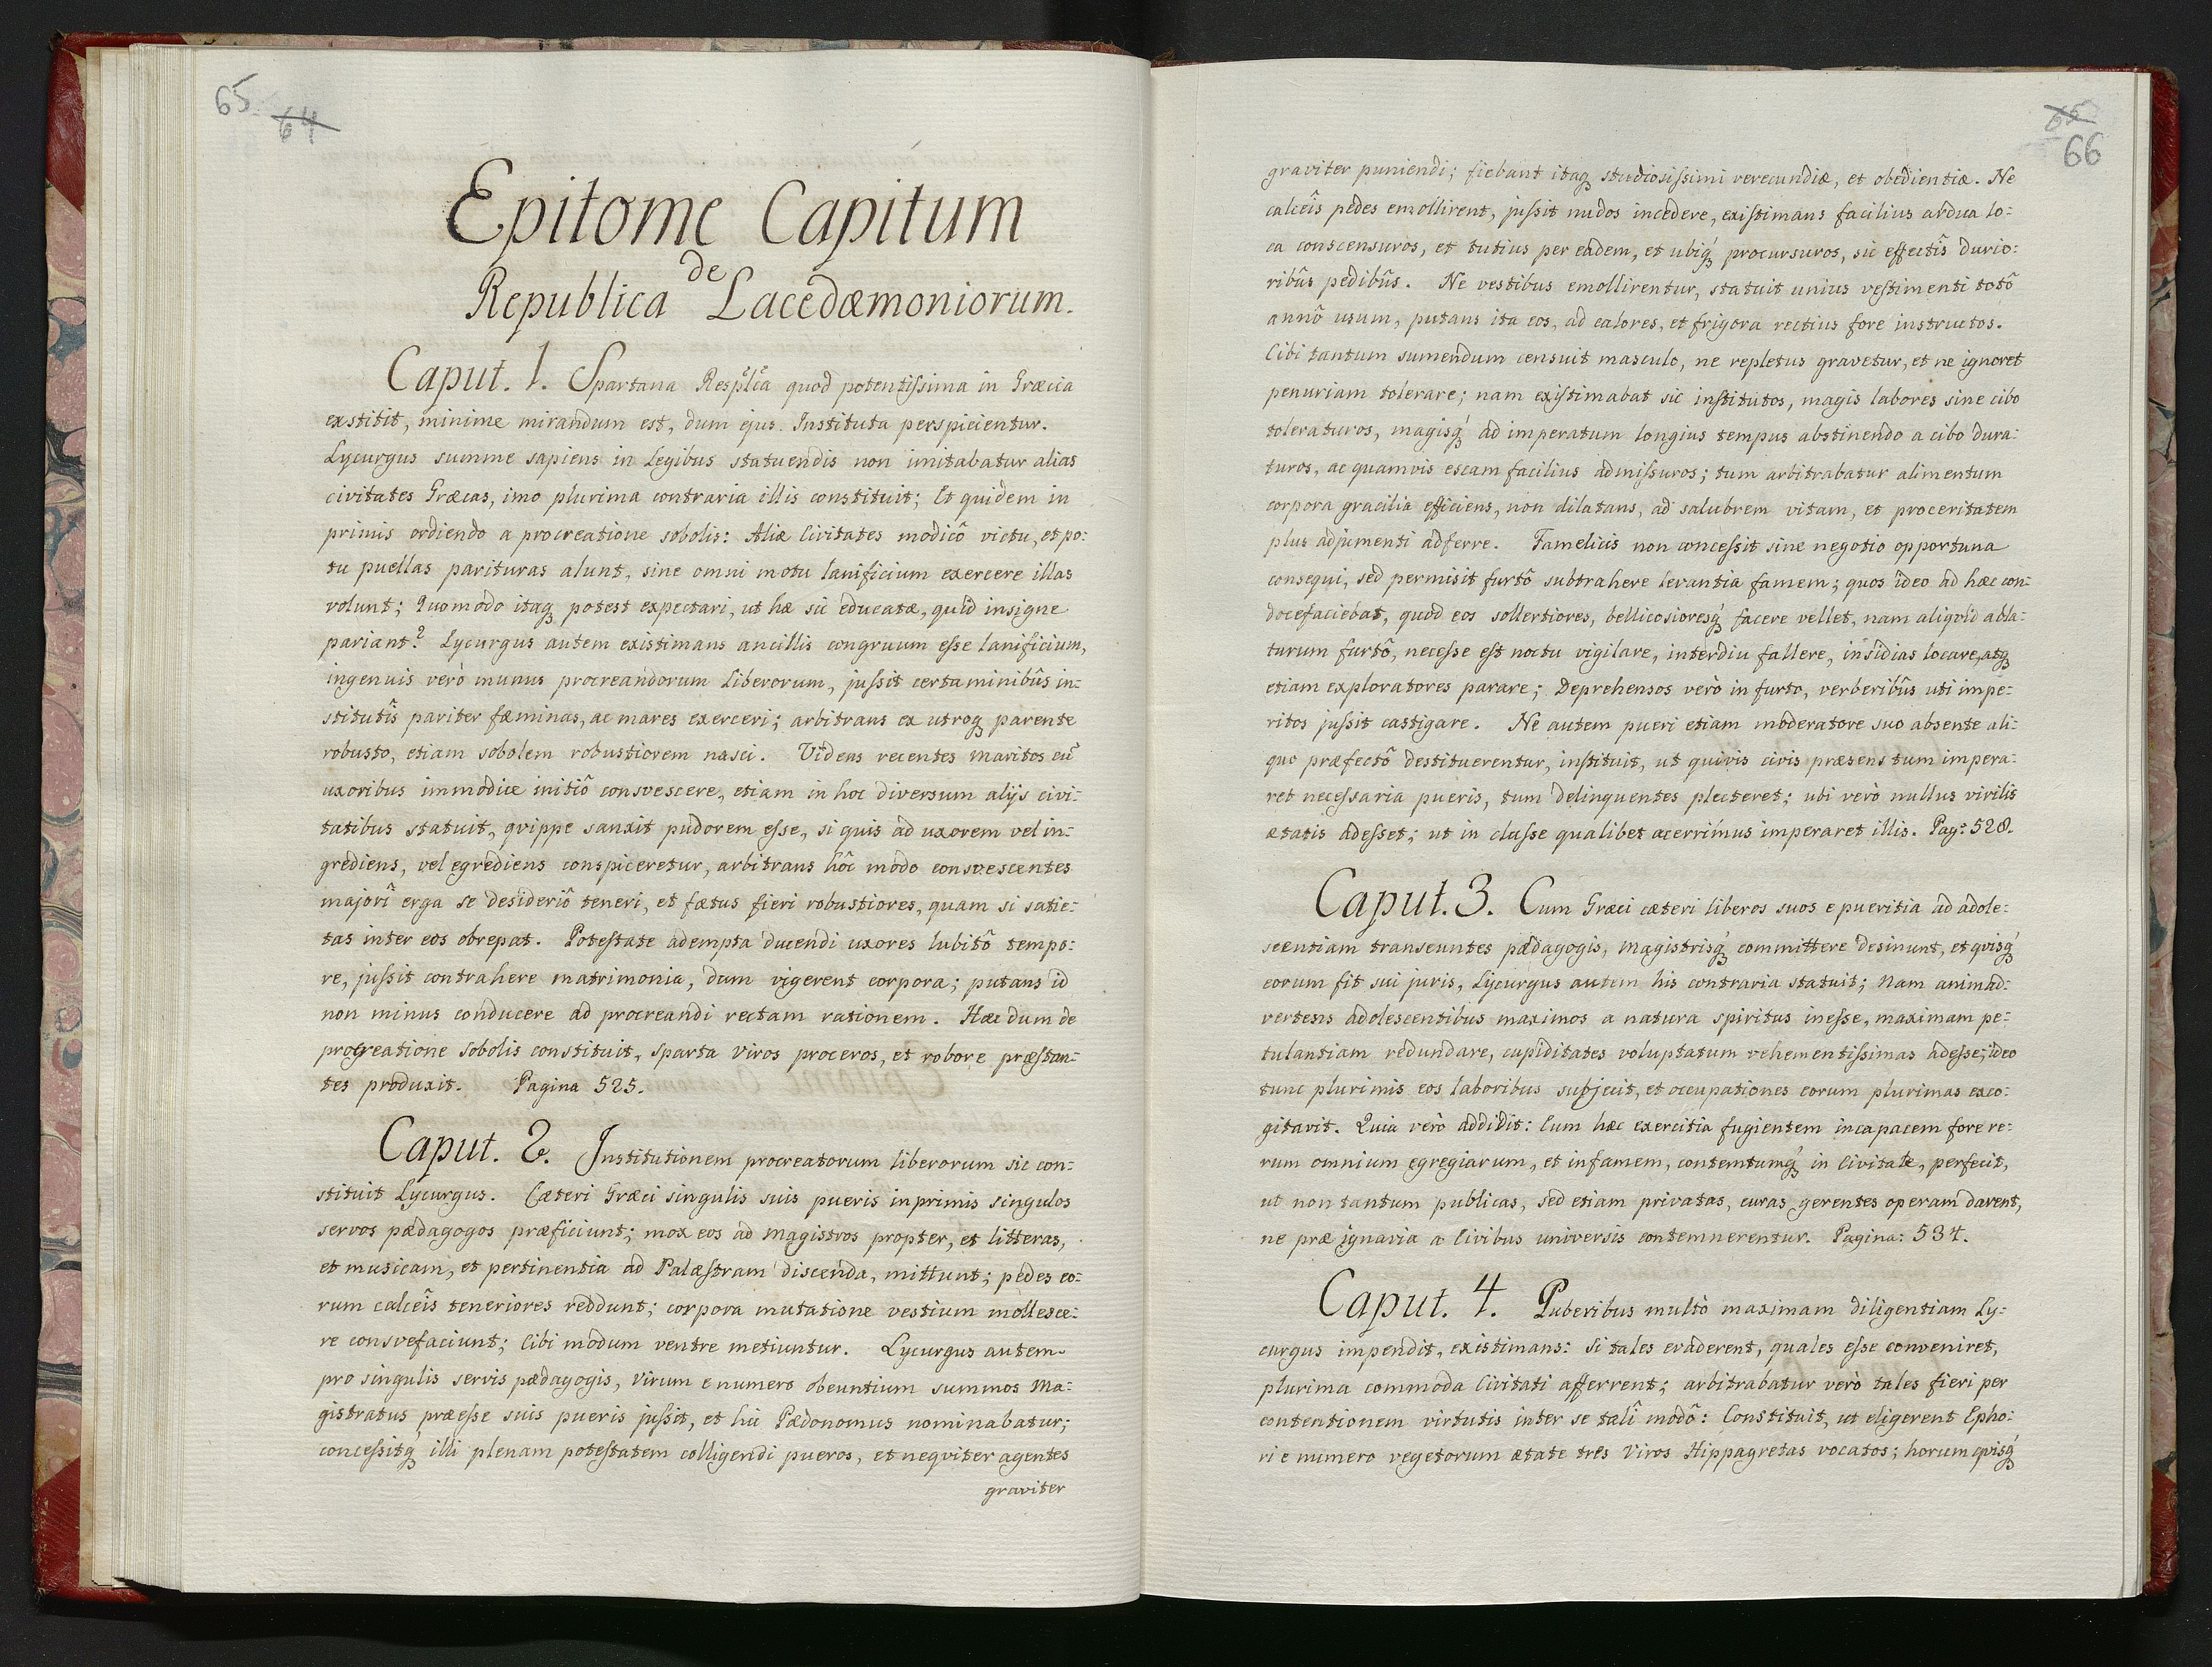 65
64
Epitome Capitum
de
Republica Lacedæmoniorum.
Caput. 1. Spartana Respl̃ca quod potentiſsima in Græcia
exstitit, minime mirandum est, dum ejus Instituta perspicientur.
Lycurgus summe sapiens in Legibus statuendis non imitabatur alias
civitates Græcas, imo plurima contraria illis constituit; Et quidem in
primis ordiendo a procreatione sobolis: Aliæ Civitates modicô victu, et po:
tu puellas parituras alunt, sine omni motu lanificium exercere illas
volunt; Quomodo itaq̃ potest expectari, ut hæ sic educatæ, quid insigne
pariant? Lycurgus autem existimans ancillis congruum eſse lanificium,
ingenuis verò munus procreandorum Liberorum, juſsit certaminibûs in:
stitutîs pariter fæminas, ac mares exerceri; arbitrans ex utroq̃ parente
robusto, etiam sobolem robustiorem nasci. Videns recentes maritos cũ
uxoribus immodice initiô consvescere, etiam in hoc diversum alijs civi:
tatibus statuit, qvippe sanxit pudorem eſse, si quis ad uxorem vel in:
grediens, vel egrediens conspiceretur, arbitrans hôc modo consvescentes
majorî erga se desideriô teneri, et fætus fieri robustiores, quam si satie:
tas inter eos obrepat. Poteſtate adempta ducendi uxores lubitô tempo:
re, juſsit contrahere matrimonia, dum vigerent corpora; putans id
non minus conducere ad procreandi rectam rationem. Hæc dum de
procreatione sobolis constituit, Sparta viros proceros, et robore præſtan:
tes produxit. Pagina 525.
Caput. 2. Institutionem procreatorum liberorum sic con:
stituit Lycurgus. Cæteri Græci singulis suis pueris inprimis singulos
servos pædagogos præficiunt; mox eos ad Magistros propter, et litteras,
et musicam, et pertinentia ad Palæſtram discenda, mittunt; pedes eo:
rum calceîs teneriores reddunt; corpora mutatione vestium mollesce:
re consvefaciunt; Cibi modum ventre metiuntur. Lycurgus autem
pro singulis servis pædagogis, virum e numero obeuntium summos Ma:
gistratus præeſse suis pueris juſsit, et hic Pædonomus nominabatur;
conceſsitq̃ illi plenam poteſtatem colligendi pueros, et neqviter agentes
graviter
65
66
graviter puniendi; fiebant itaq̃ studiosiſsimi verecundiæ, et obedientiæ. Ne
calceîs pedes emollirent, juſsit nudos incedere, exiſtimans facilius ardua lo:
ca conscensuros, et tutius per eadem, et ubiq̃ procursuros, sic effectîs durio:
ribûs pedibûs. Ne vestibus emollirentur, statuit unius veſtimenti totô
annô usum, putans ita eos, ad calores, et frigora rectius fore instructos.
Cibi tantum sumendum censuit masculo, ne repletus gravetur, et ne ignoret
penuriam tolerare; nam exiſtimabat sic inſtitutos, magis labores sine cibo
toleraturos, magisq̃ ad imperatum longius tempus abstinendo a cibo dura:
turos, ac quamvis escam facilius admiſsuros; tum arbitrabatur alimentum
corpora gracilia efficiens, non dilatans, ad salubrem vitam, et proceritatem
plus adjumenti adferre. Famelicis non conceſsit sine negotio opportuna
consequi, sed permisit furtô subtrahere levantia famem; quos ideo ad hæc con:
docefaciebat, quod eos sollertiores, bellicosioresq̃ facere vellet, nam aliqvid abla:
turum furtô, neceſse eſt noctu vigilare, interdiu fallere, insidias locare, atq̃
etiam exploratores parare; Deprehensos verò in furto, verberibûs uti impe:
ritos juſsit castigare. Ne autem pueri etiam moderatore suo absente ali:
quo præfectô destituerentur, inſtituit, ut quivis civis præsens tum impera:
ret neceſsaria pueris, tum delinquentes plecteret; ubi verò nullus virilis
ætatis adeſset; ut in claſse qualibet acerrimus imperaret illis. Pag: 528.
Caput. 3. Cum Græci cæteri liberos suos e pueritia ad adole:
scentiam transeuntes pædagogis, Magistrisq̃ committere desinunt, et qvisq̃
eorum fit sui juris, Lycurgus autem his contraria statuit; Nam animad:
vertens adolescentibus maximos a natura spiritus ineſse, maximam pe:
tulantiam redundare, cupiditates voluptatum vehementiſsimas adeſse; ideo
tunc plurimis eos laboribus subjecit, et occupationes eorum plurimas exco:
gitavit. Quia verò addidit: Cum hæc exercitia fugientem incapacem fore re:
rum omnium egregiarum, et infamem, contemtumq̃ in Civitate, perfecit,
ut non tantum publicas, sed etiam privatas, curas gerentes operam darent,
ne præ ignavia a Civibus universis contemnerentur. Pagina: 534.
Caput. 4. Puberibus multò maximam diligentiam Ly:
curgus impendit, existimans: Si tales evaderent, quales eſse conveniret,
plurima commoda Civitati afferrent; arbitrabatur verò tales fieri per
contentionem virtutis inter se talî modô: Constituit, ut eligerent Epho:
ri e numero vegetorum ætate três Viros Hippagretas vocatos; horum qvisq̃